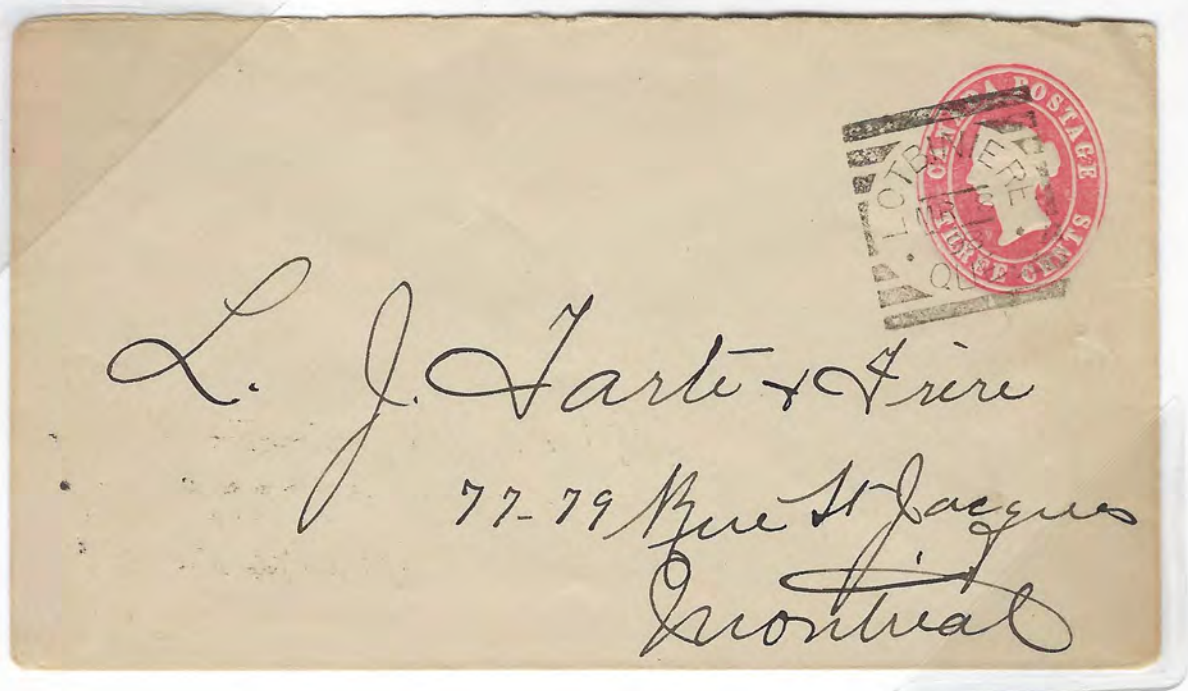 CANADA POSTAGE
THREE CENTS
LOTBINIERE
L. J. Tarte & Frère
77-79 Rue St Jacques
Montreal